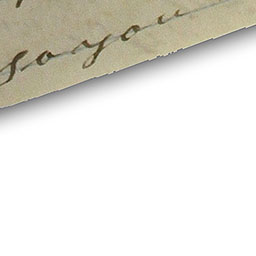 so you